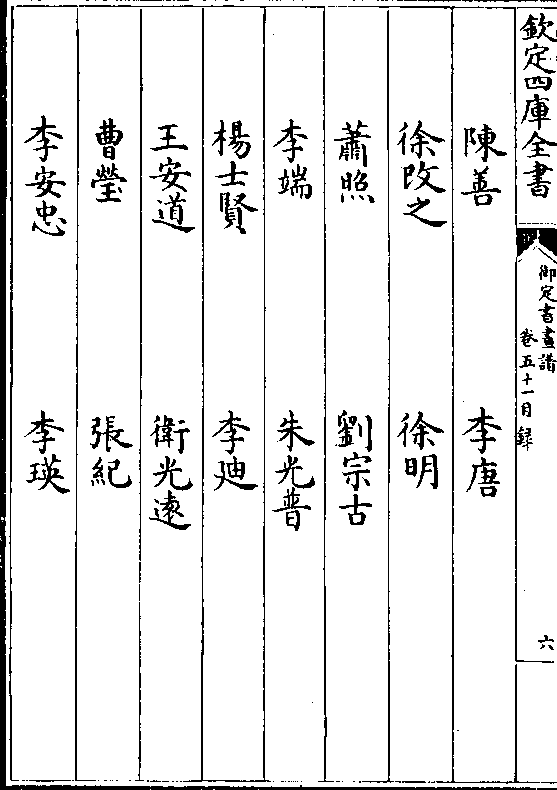 欽定四庫全書
御定書畫譜
卷五十一目錄
六
陳善 李唐
徐改之 徐明
蕭照 劉宗古
李端 朱光普
楊士賢 李廸
王安道 衛光遠
曹瑩 張紀
李安忠 李瑛